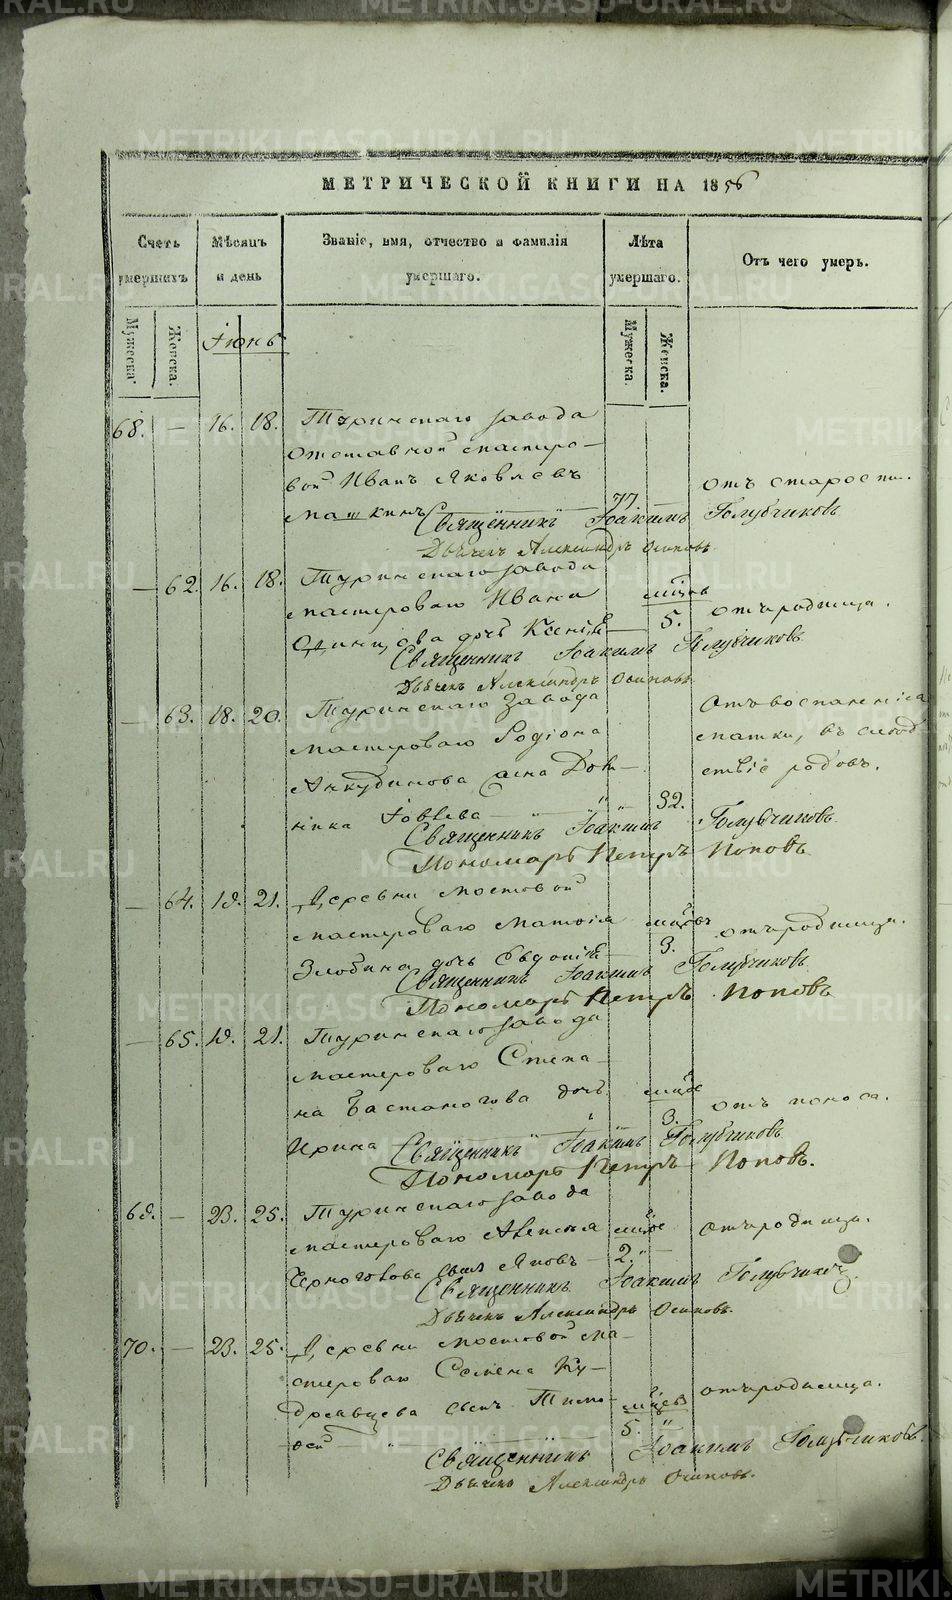 МЕТРИЧЕСКОЙ КНИГИ НА 1856
Счетъ умершихъ
Мѣсяцъ и день
Званіе, имя, отчество и фамилія умершаго.
Лѣта умершаго.
Отъ чего умеръ.
Мужеска.
Женска.
Мужеска.
Женска.
Іюнь
68. — 16. 18. Туринскаго завода
отставной мастеро-
вой Иванъ Яковлевъ
Машкинъ 77 отъ старости.
Священникъ Іоакимъ Голубчиковъ
Дьячекъ Александръ Осиповъ.
— 62. 16. 18. Туринскаго завода
мастероваго Ивана
Одинцова дочь Ксенія — мѣсяцовъ 5. отъ родимца.
Священникъ Іоакимъ Голубчиковъ
Дьячекъ Александръ Осиповъ
— 63. 18. 20. Туринскаго завода
мастероваго Родіона
Анкудинова жена Дом-
ника Іовлева 32. отъ воспаленія
матки, въ слѣд-
ствіе родовъ.
Священникъ Іоакимъ Голубчиковъ
Пономарь Петръ Поповъ
— 64. 19. 21. Деревни Мостовой
мастероваго Матвія
Злобина дочь Евдокія — 3. отъ родимца.
Священникъ Іоакимъ Голубчиковъ
Пономарь Петръ Поповъ
— 65. 19. 21. Туринскаго завода
мастероваго Степа-
на дочь
Ирина 3. отъ поноса.
Священникъ Іоакимъ Голубчиковъ
Пономарь Петръ Поповъ.
69. — 23. 25. Туринскаго завода
мастероваго Алексія
Черноголова сынъ Яковъ — 2. отъ родимца.
Священникъ Іоакимъ Голубчиковъ
Дьячекъ Александръ Осиповъ.
70. — 23. 25. Деревни Мостовой ма-
стероваго Семена Ку-
дрявцева сынъ Тимо-
фей 5. отъ родимца.
Священникъ Іоакимъ Голубчиковъ.
Дьячекъ Александръ Осиповъ.
METRIKI.GASO-URAL.RU